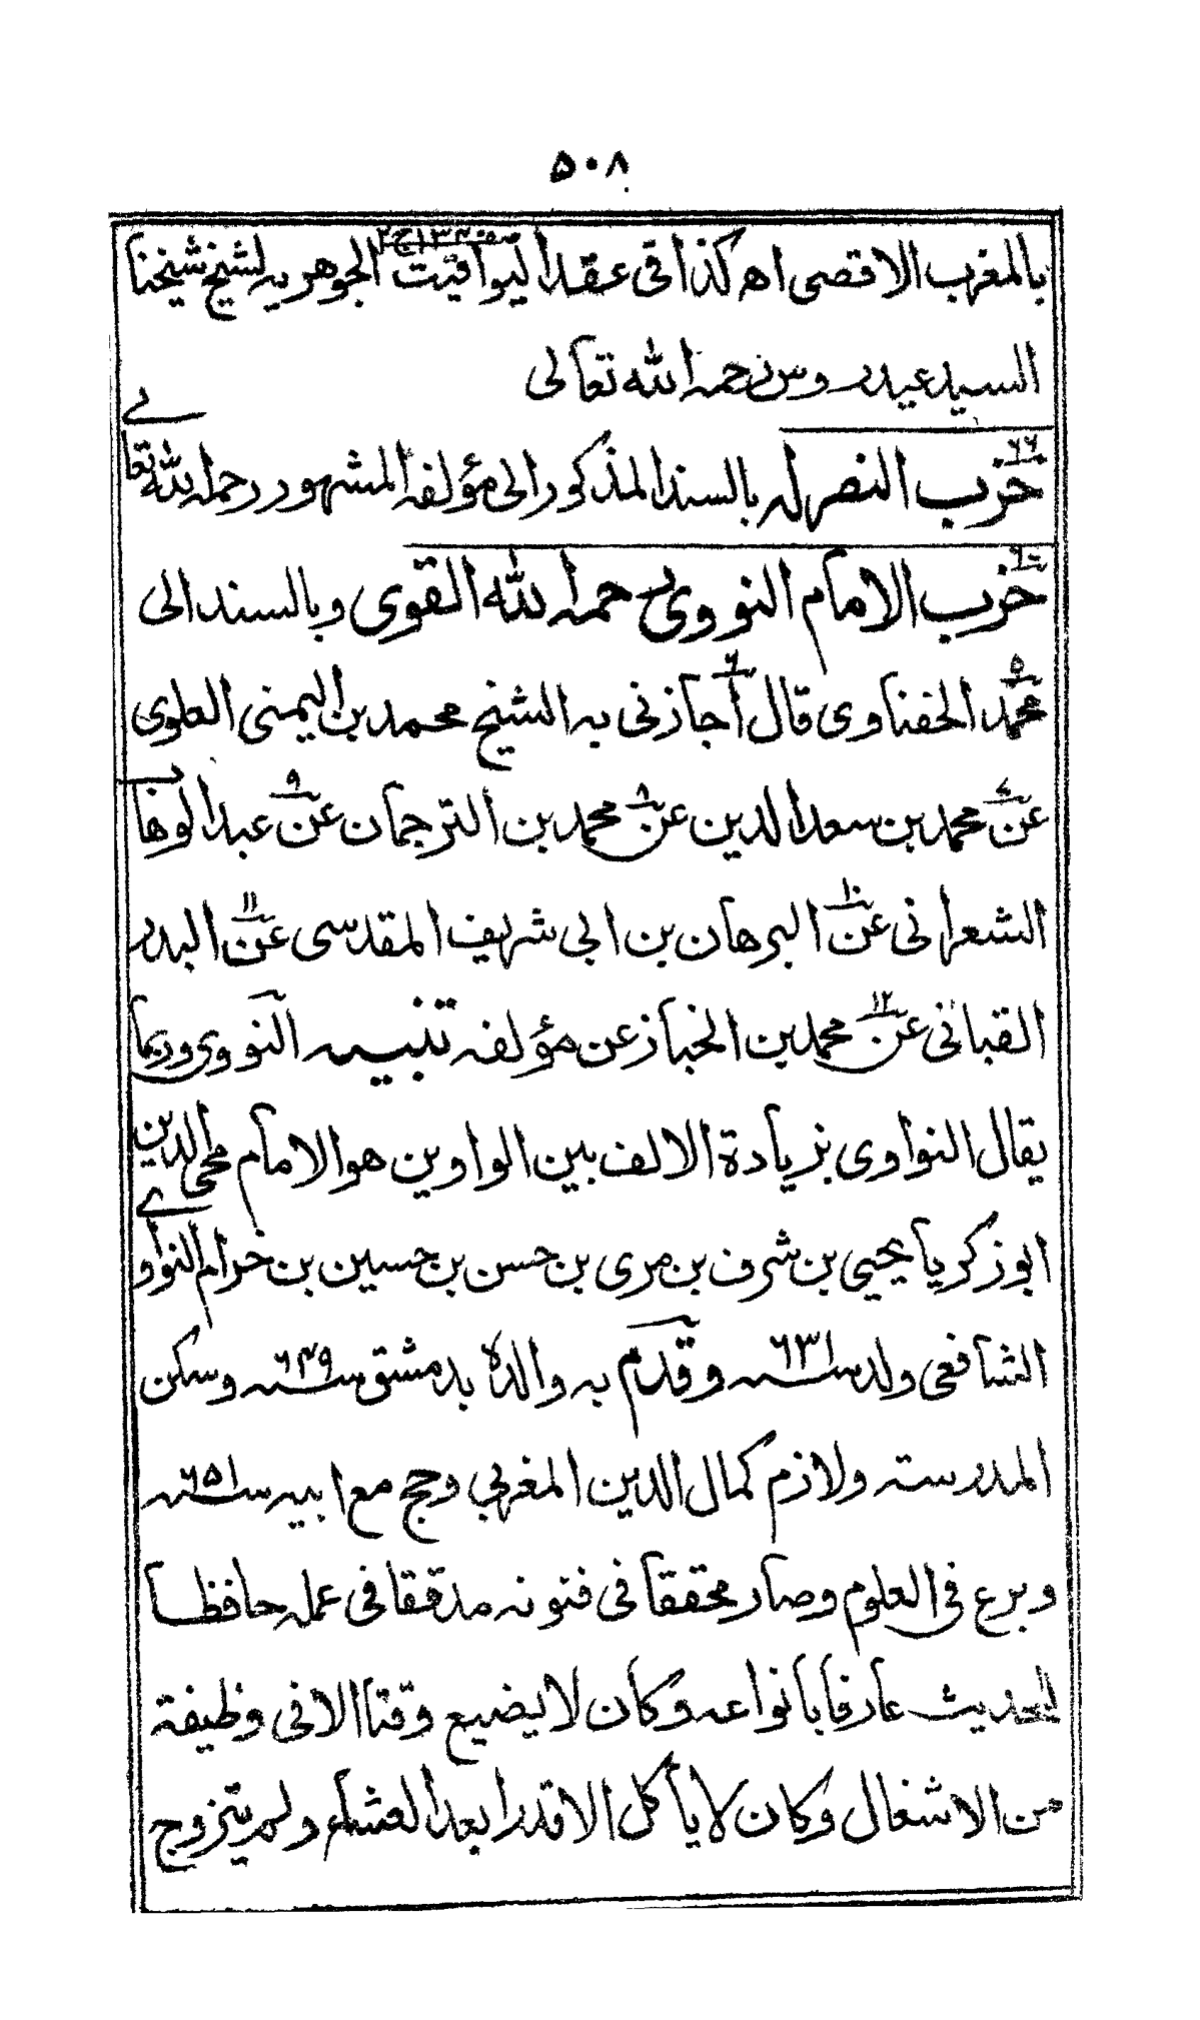 ٥٠٨
بالمغرب الاقصى اه كذا فى عقد اليواقيت الجوهريه لشيخ شيخنا
السيد عيدروس رحمه الله تعالى
٦٦ حزب النصر له بالسند المذكور الى مؤلفه المشهور رحمه الله تعالى
حزب الامام النووى رحمه الله القوى وبالسند الى
٥ محمد الحفناوى قال ٦ اجازنى به الشيخ محمد بن اليمنى العلوى
٧ عن محمد بن سعد الدين ٨ عن محمد بن الترجمان ٩ عن عبد الوهاب
الشعرانى ١٠ عن البرهان بن ابى شريف المقدسى ١١ عن البدر
القبانى ١٢ عن محمد بن الخباز عن مؤلفه تنبيه النووى وربما
يقال النواوى بزيادة الالف بين الواوين هو الامام محى الدين
ابو زكريا يحيى بن شرف بن مرى بن حسن بن حسين بن حزام النواوى
الشافعى ولد سنه ٦٣١ وقدم به والده بدمشق سنه ٦٤٩ وسكن
المدرسته ولازم كمال الدين المغربى وحج مع ابيه سنه ٦٥١
وبرع فى العلوم وصار محققا فى فنونه مدققا فى عمله حافظا
للحديث عارفا بانواعه وكان لا يضيع وقتا الا فى وظيفة
من الاشغال وكان لا يأكل الا قدرا بعد العشاء ولم يتزوج